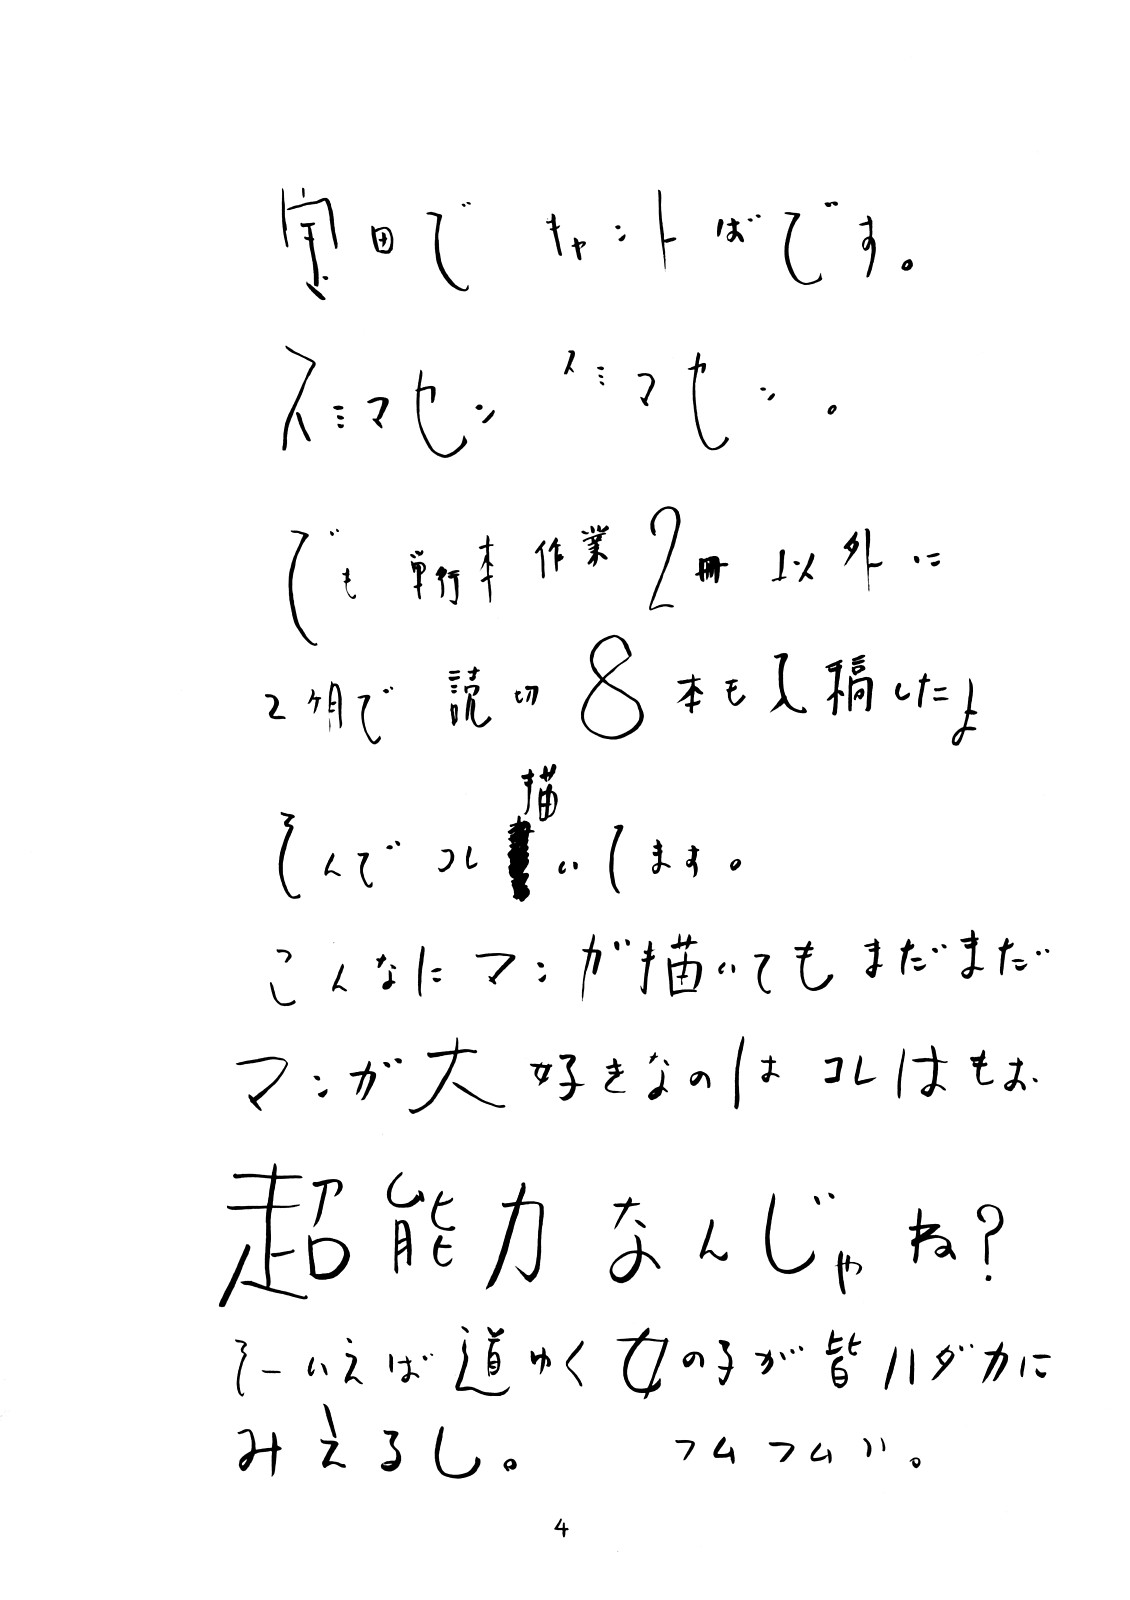 宝田で キャントばです。
スミマセン スミマセン。
でも単行本作業2冊以外に
2ヶ月で読切8本も入稿したよ
そんでコレ描いてます。
こんなにマンガ描いてもまだまだ
マンガ大好きなのはコレはもお
超能力なんじゃね?
そーいえば道ゆく女の子が皆ハダカに
みえるし。 フムフム゛。
4